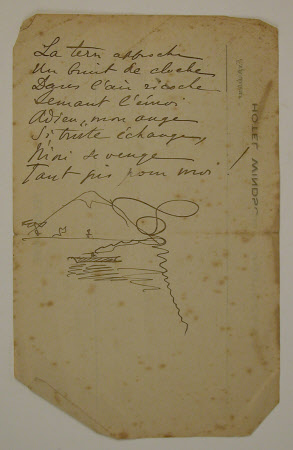 La terre approche
Un bruit de cloche
Dans l'air ricoche
Semant l'émoi
Adieu, mon ange
Si triste échange,
se venge
Tant pis pour moi !
HOTEL